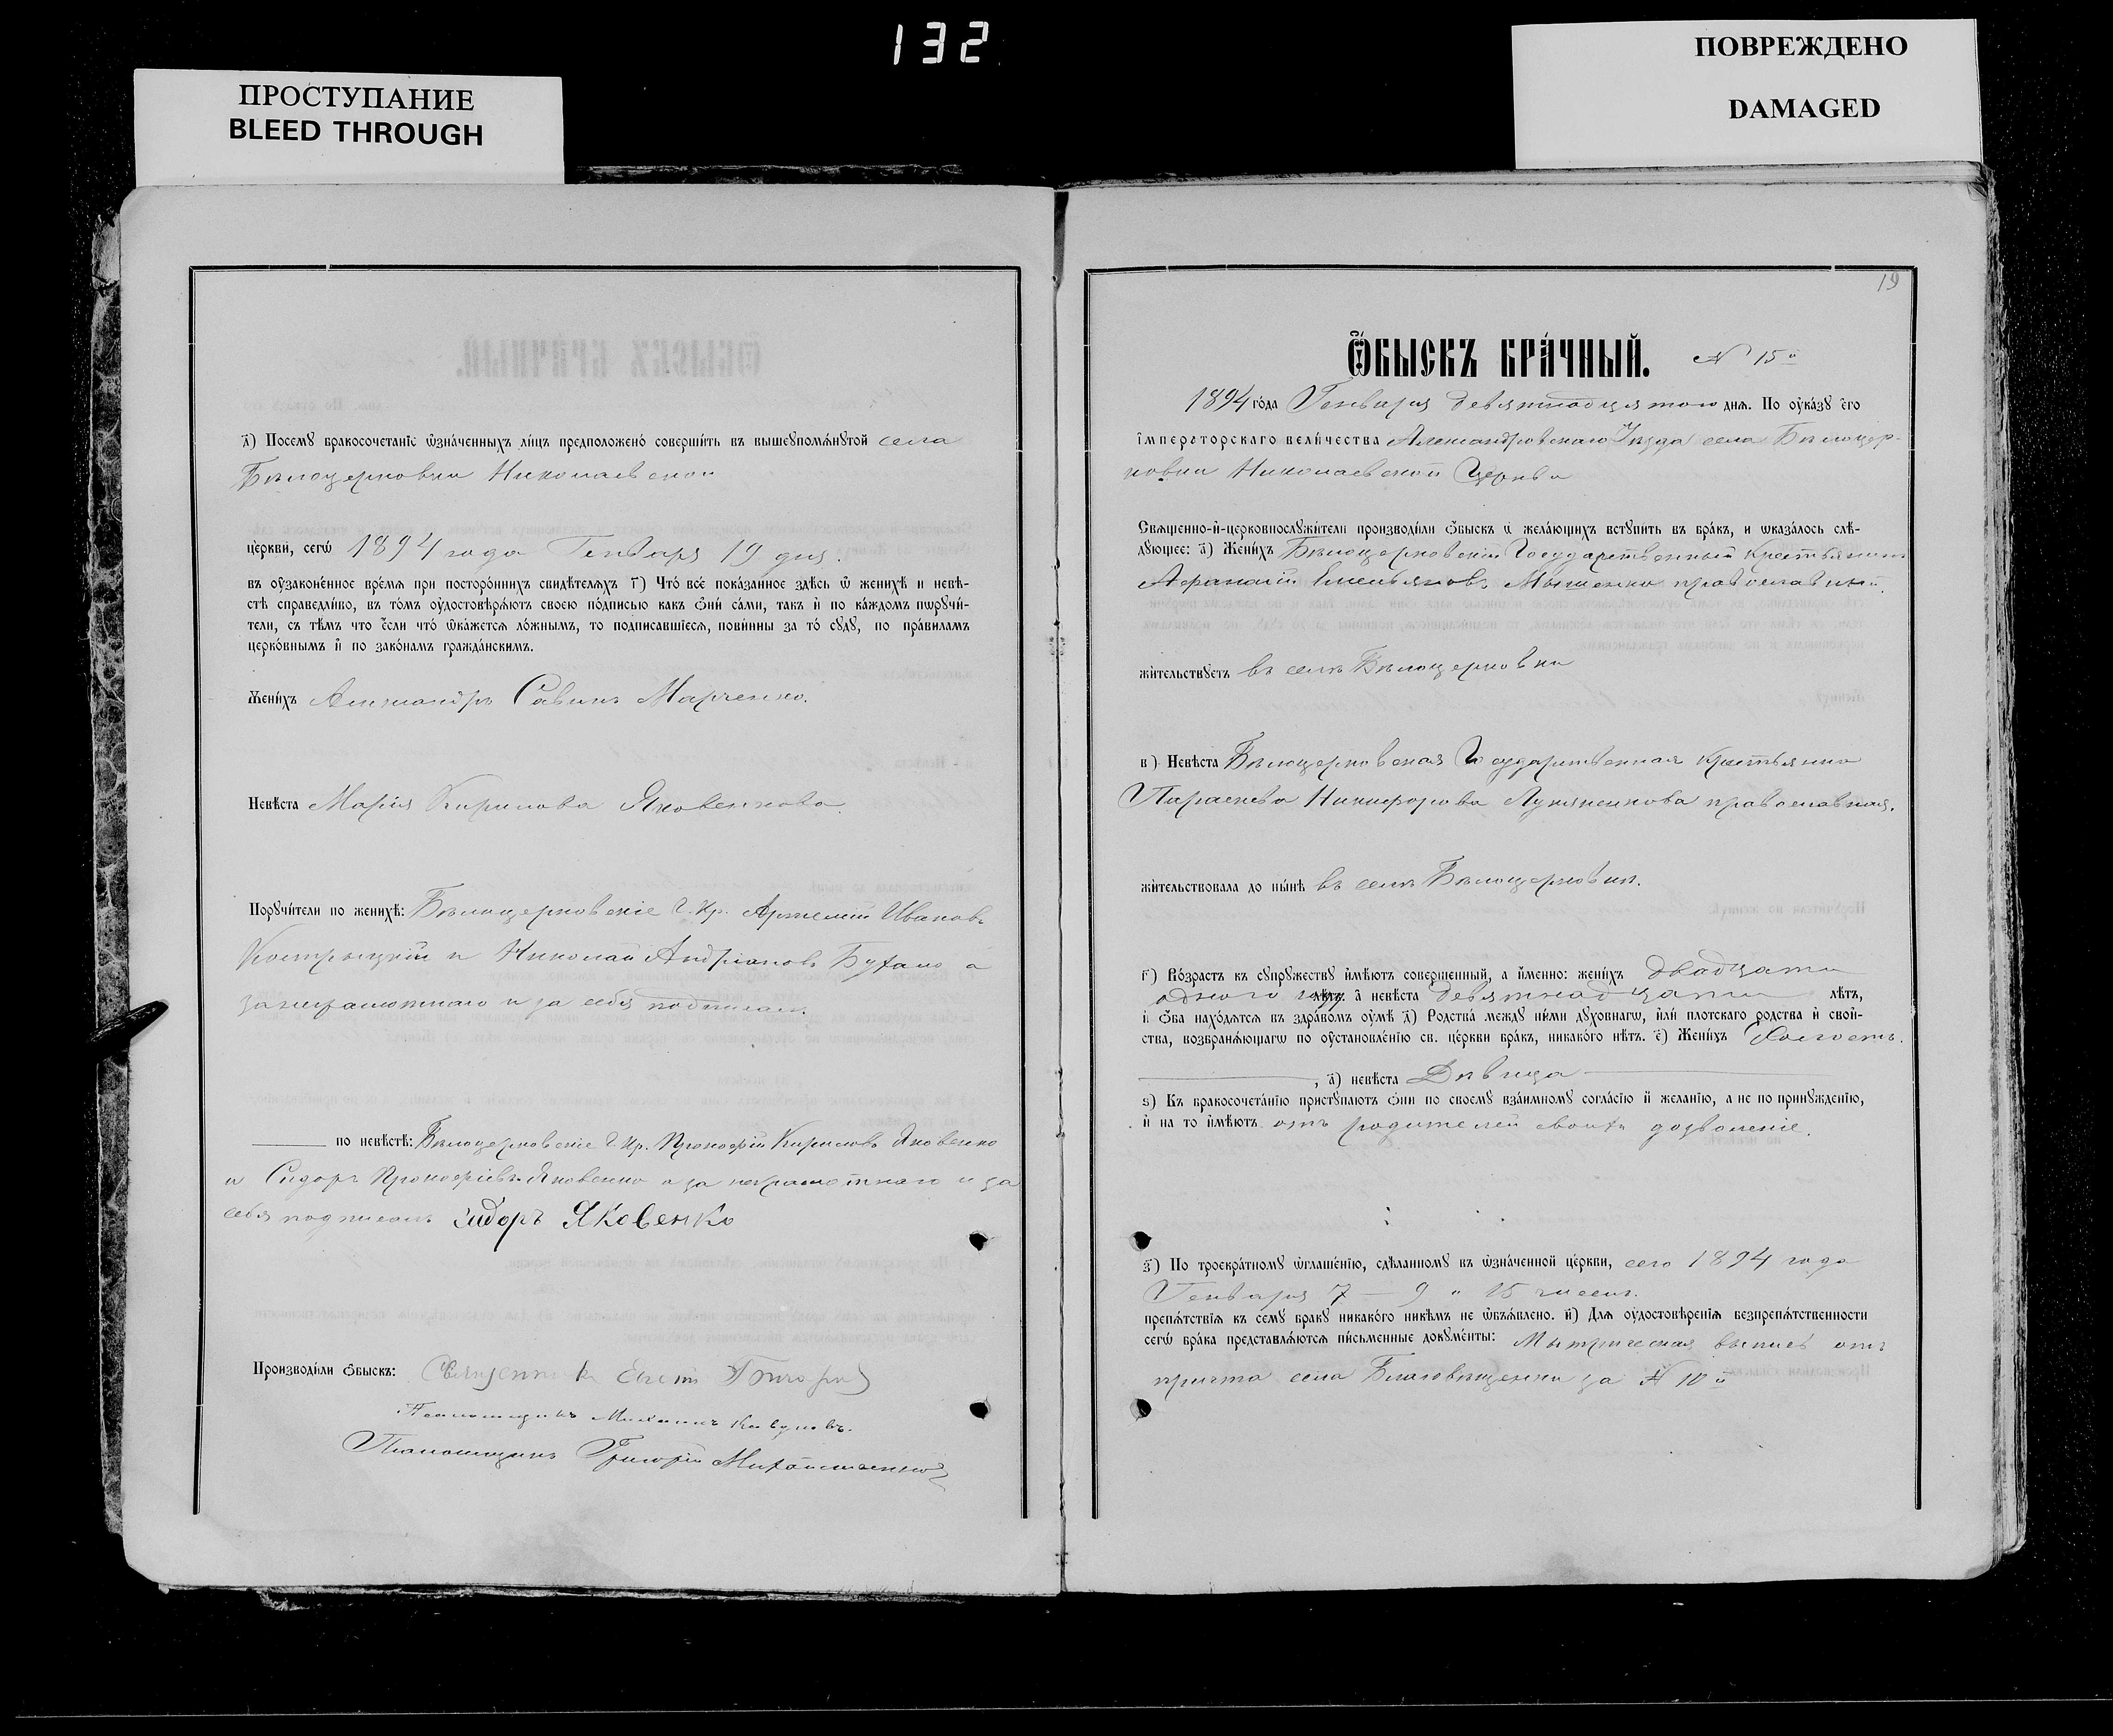 132
ПРОСТУПАНИЕ
BLEED THROUGH
ПОВРЕЖДЕНО
DAMAGED
д҃) Посемꙋ бракосочетаніе ѡ҆зна́ченныхъ ли́цъ предположено̀ соверши́ть въ вышеꙋпомѧ́нꙋтой села
Бѣлоцерковки Николаевской
це́ркви, сегѡ̀ 1894 года Генваря 19 дня.
въ оу҆зако́ненное вре́мѧ при посторо́ннихъ свидѣ́телѧхъ г҃) Что̀ всѐ пока́занное здѣ́сь ѡ҆ женихѣ̀ и невѣ́-
стѣ справедли́во, въ то́мъ оу҆достовѣрѧ́ютъ своею по́дписью какъ ѻ҆нѝ са́ми, такъ и҆ по ка́ждомъ порꙋчи́-
тели, съ тѣ́мъ что є҆́сли что̀ ѡ҆ка́жетсѧ ло́жнымъ, то подписавшіесѧ, пови́нны за то̀ сꙋдꙋ̀, по пра́виламъ
церко́внымъ и҆ по зако́намъ гражда́нскимъ.
Жени́хъ Александръ Савинъ Марченко.
Невѣ́ста Марія Кирилова Яковенкова.
Порꙋчи́тели по женихѣ̀: Бѣлоцерковскіе Г. Кр. Артемій Ивановъ
Кострыцкій и Николай Андріановъ Бухало а
за неграмотнаго и за себя подписалъ
по невѣ́стѣ: Бѣлоцерковскіе Г. Кр. Прокофій Кириловъ Яковенко
и Сидоръ Прокофіевъ Яковенко а за неграмотнаго и за
себя подписалъ Сидоръ Яковенко
Производи́ли ѻ҆́быскъ: Священникъ Григорій
Псаломщикъ Михаилъ
Псаломщикъ Григорій Михайличенко
19
Ѻ҆́БЫСКЪ БРА́ЧНЫЙ. N 15й
1894 го́да Генваря девятнадцятого днѧ. По оу҆ка́зꙋ є҆гѡ̀
і҆мпера́торскаго вели́чества Александровскаго Уѣзда села Бѣлоцер-
ковки Николаевской Церкви
Свѧщенно-и҆-церковнослꙋжи́тели производи́ли ѻ҆́быскъ ѡ҆ жела́ющихъ встꙋпи́ть въ бра́къ, и ѡказа́лось слѣ́-
дꙋющее: а҃) Жени́хъ Бѣлоцерковскій Государственный Крестьянинъ
Афанасій Емельяновъ Мышенко православный.
жи́тельствꙋетъ въ селѣ Бѣлоцерковки
в҃) Невѣ́ста Бѣлоцерковская Государственная Крестьянка
Параскева Никифорова Лукяненкова православная.
жи́тельствовала до ны́нѣ въ селѣ Бѣлоцерковки.
г҃) Во́зрастъ къ сꙋпрꙋ́жествꙋ и҆мѣ́ютъ соверше́нный, а и҆́менно: жени́хъ двадцати
одного году а невѣ́ста девятнадцати лѣ́тъ,
и ѻ҆́ба нахо́дѧтсѧ въ здра́вомъ оу҆мѣ̀ д҃) Родства̀ между ни́ми дꙋховнагѡ, и҆́ли плотскаго родства и҆ свой-
ства̀, возбранѧ́ющагѡ по оу҆становле́нію св. це́ркви бра́къ, никако́го нѣ́тъ. є҃) Жени́хъ Холостъ.
, а) невѣ́ста Дѣвица
ѕ҃) Къ бракосочета́нію пристꙋпа́ютъ ѻ҆нѝ по своемꙋ̀ вза́имномꙋ согла́сію и҆ жела́нію, а не по принꙋжде́нію,
и҆ на то и҆мѣ́ютъ отъ родителей своихъ дозволеніе.
з҃) По троекра́тномꙋ ѡ҆глаше́нію, сдѣ́ланномꙋ въ ѡ҆зна́ченной це́ркви, сего 1894 года
Генваря 7 — 9 и 15 числъ.
препѧ́тствіѧ къ семꙋ̀ бракꙋ никако́го никѣ́мъ не ѡ҆бъѧ́влено. и҃) Длѧ оу҆достовѣре́ніѧ безпрепѧ́тственности
сегѡ̀ бра́ка представлѧ́ютсѧ пи́сьменные докꙋме́нты: Мытрическая выпись отъ
причта села Благовѣщенки за № 10й